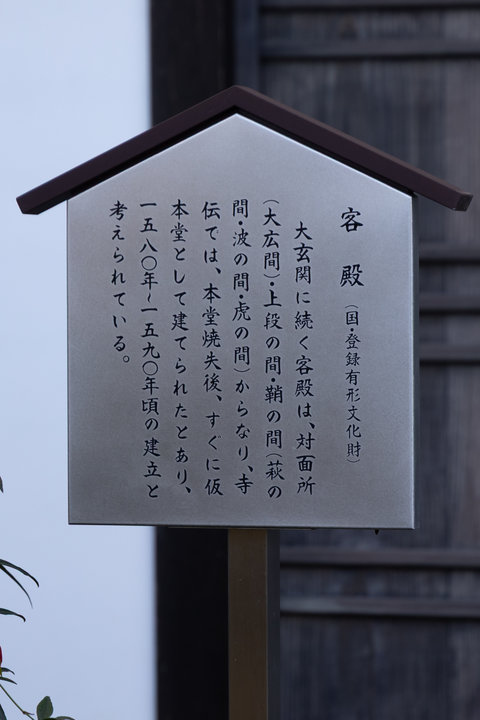 客殿（国・登録有形文化財）
大玄関に続く客殿は、対面所
（大広間）・上段の間・鞘の間（萩の
間・波の間・虎の間）からなり、寺
伝では、本堂焼失後、すぐに仮
本堂として建てられたとあり、
一五八〇年～一五九〇年頃の建立と
考えられている。